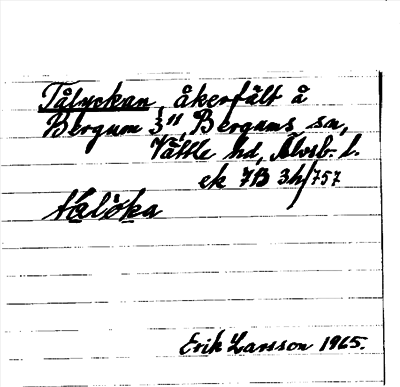 Tålyckan, åkerfält å
Bergum 3", Bergums sn,
Vättle hd, Älvsb. l.
ek 7B 3h/757
Erik Larsson 1965.